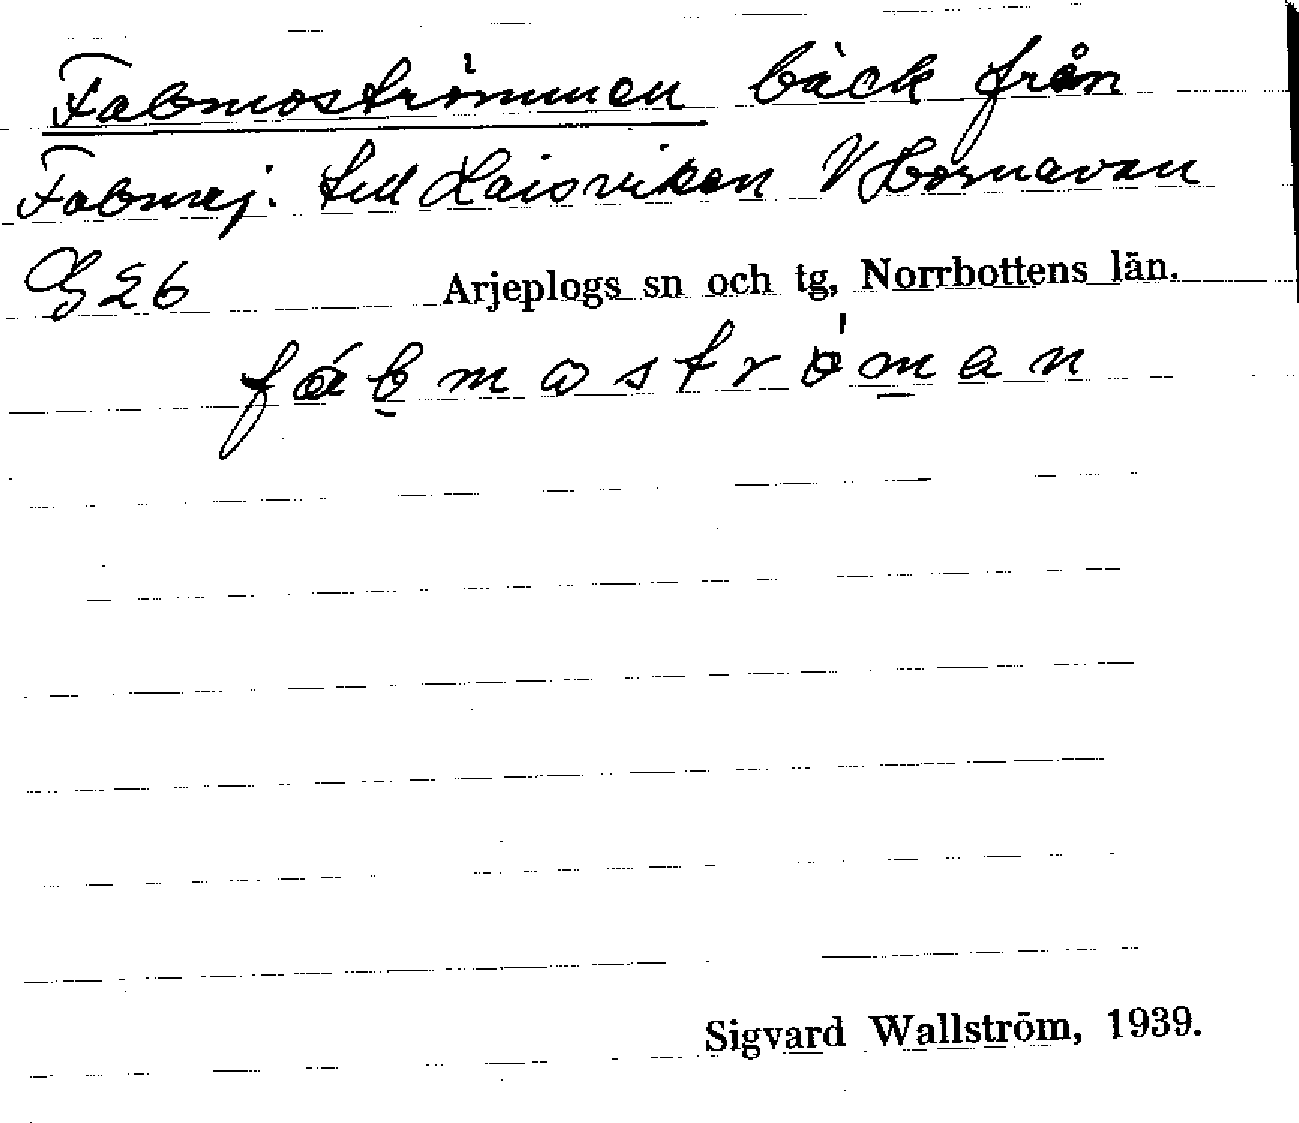 Fabmoströmmen bäck från
Fabmej. till Laisviken V Hornavan
G 26 Arjeplogs sn och tg, Norrbottens län.
fábmωströ̀man
Sigvard Wallström, 1939.